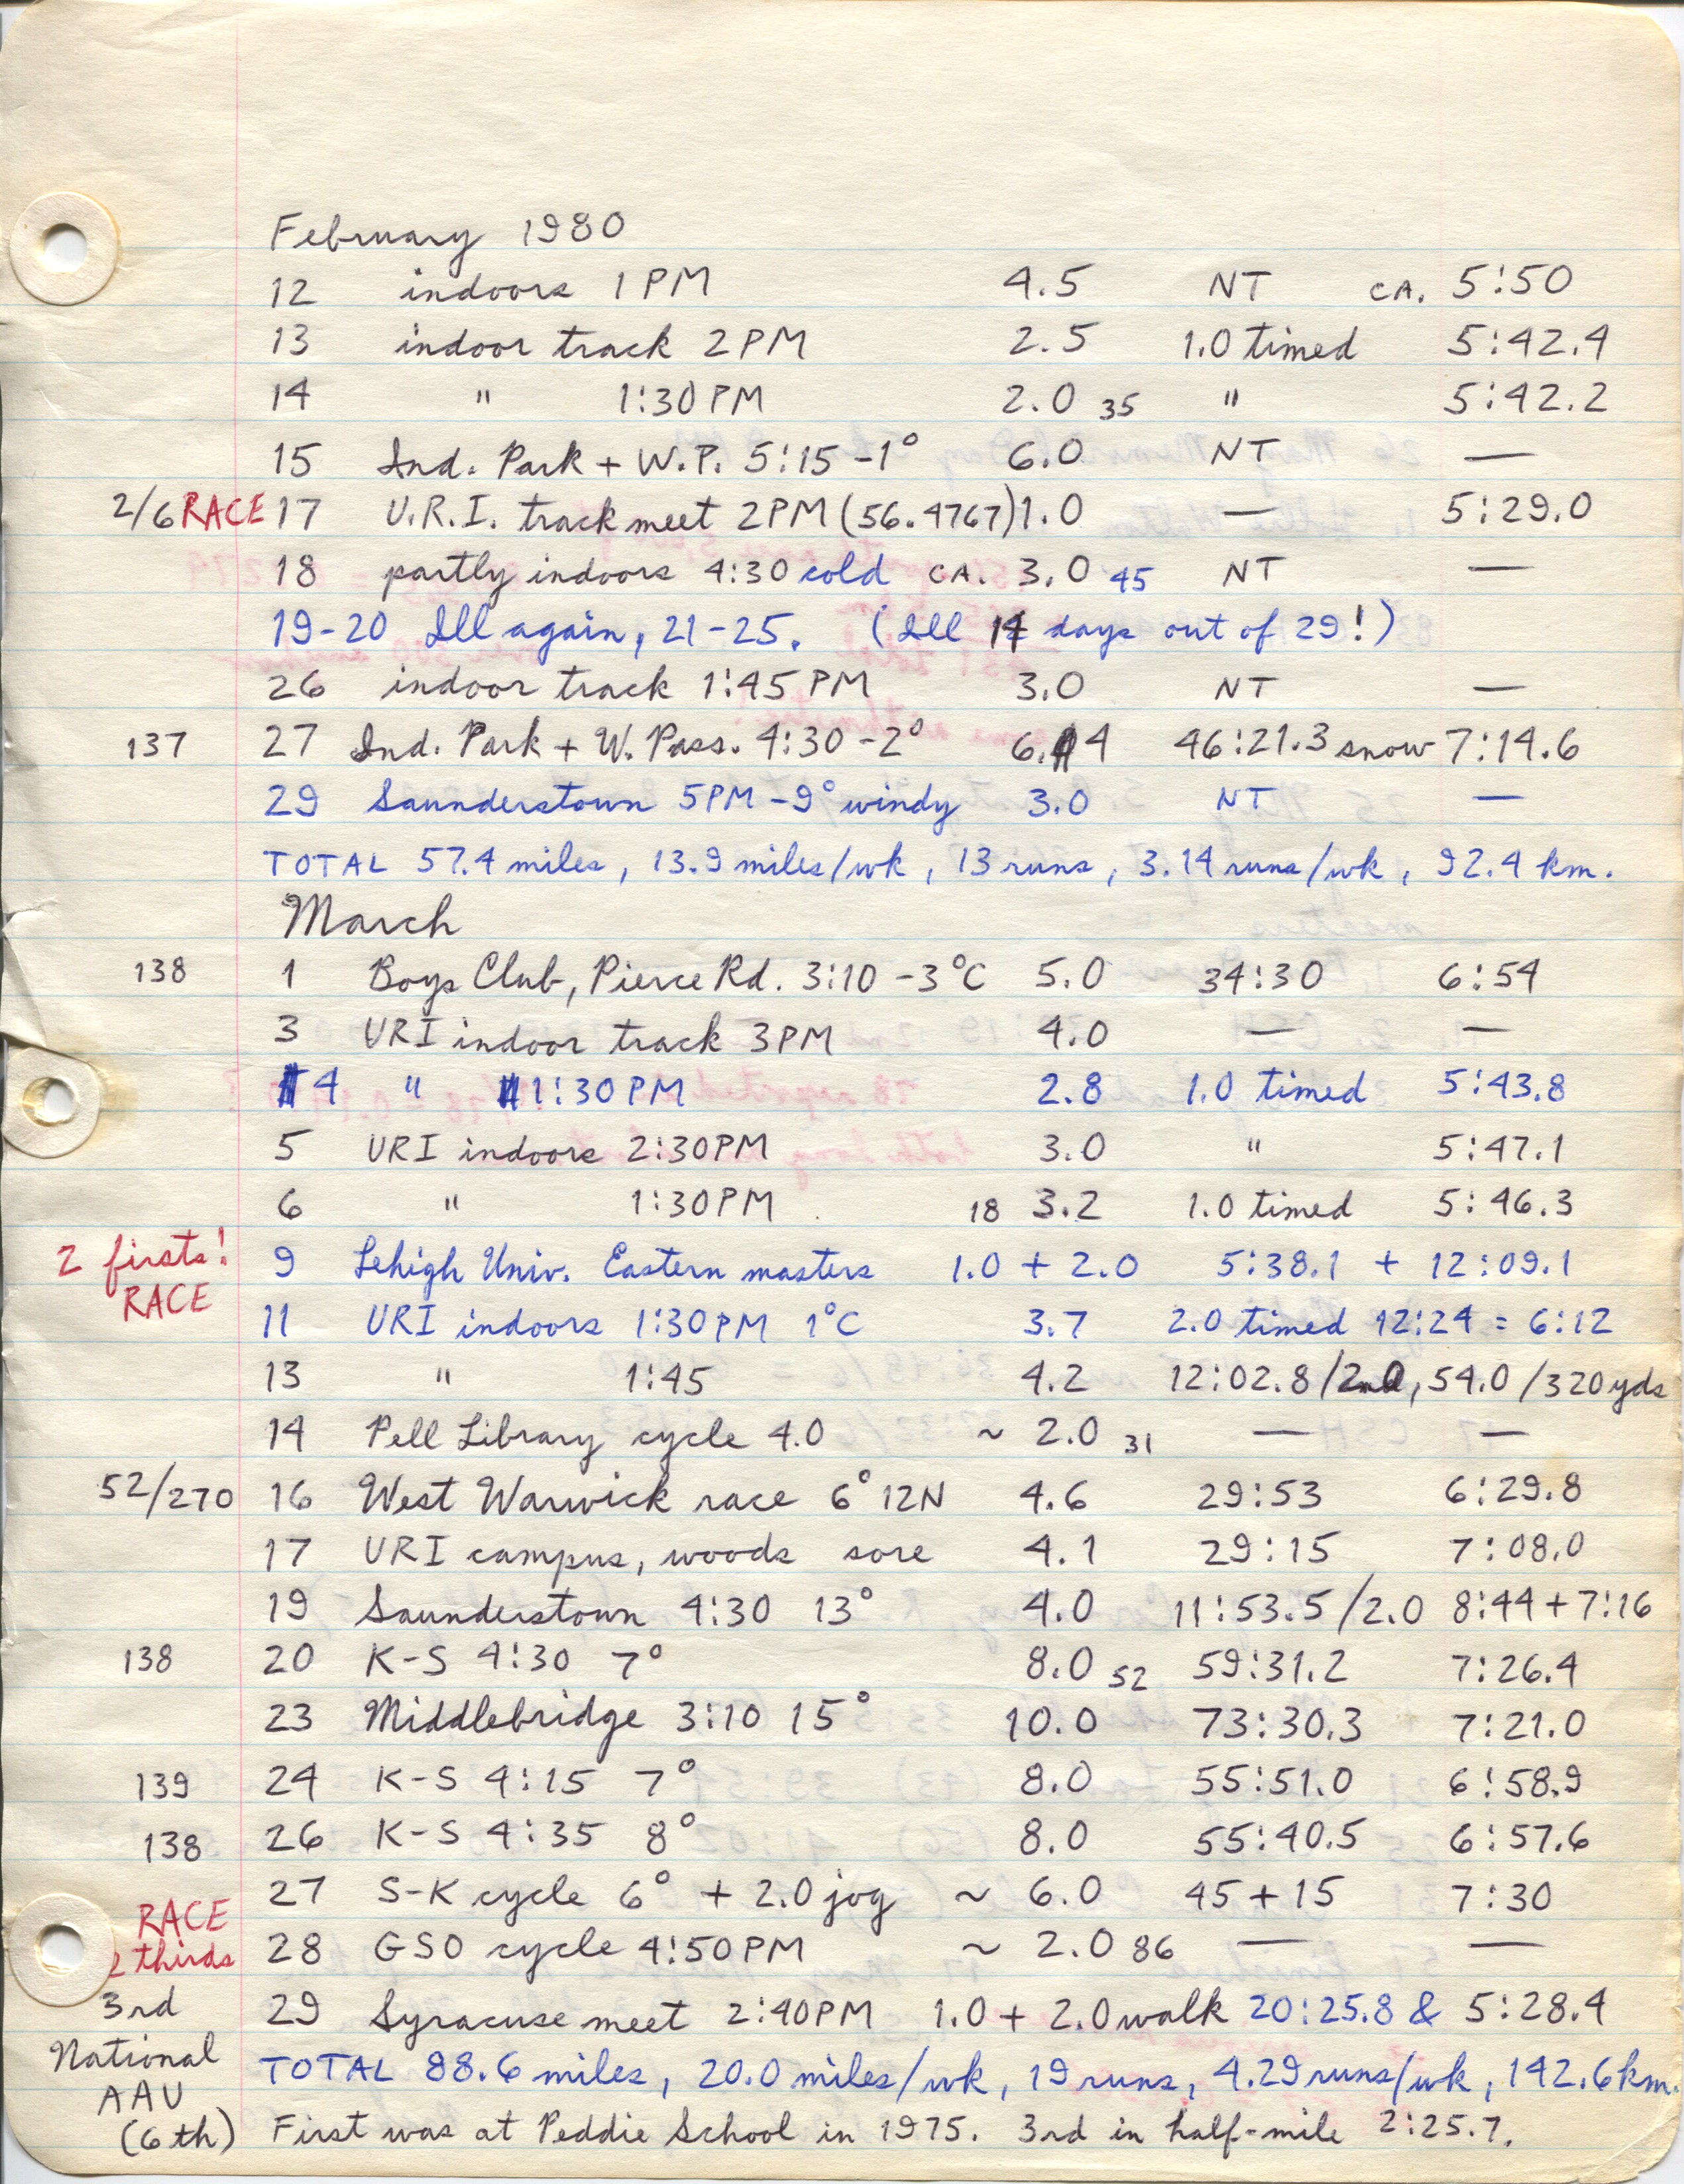 February 1980
12 indoors 1 PM 4.5 NT CA. 5:50
13 indoor track 2 PM 2.5 1.0 timed 5:42.4
14 " 1:30 PM 2.0 35 " 5:42.2
15 Ind. Park + W.P. 5:15 -1° 6.0 NT —
2/6 RACE 17 U.R.I. track meet 2 PM (56.4767) 1.0 — 5:29.0
18 partly indoors 4:30 cold CA. 3.0 45 NT —
19-20 Ill again, 21-25. (Ill 14 days out of 29!)
26 indoor track 1:45 PM 3.0 NT —
137 27 Ind. Park + W. Pass. 4:30 -2° 6.4 46:21.3 snow 7:14.6
29 Saunderstown 5PM -9° windy 3.0 NT —
TOTAL 57.4 miles, 13.9 miles/wk, 13 runs, 3.14 runs/wk, 92.4 km.
March
138 1 Boys Club, Pierce Rd. 3:10 -3°C 5.0 34:30 6:54
3 URI indoor track 3PM 4.0 — —
4 " 1:30 PM 2.8 1.0 timed 5:43.8
5 URI indoors 2:30PM 3.0 " 5:47.1
6 " 1:30PM 18 3.2 1.0 timed 5:46.3
2 firsts! 9 Lehigh Univ. Eastern masters 1.0 + 2.0 5:38.1 + 12:09.1
RACE
11 URI indoors 1:30PM 1°C 3.7 2.0 timed 12:24 = 6:12
13 " 1:45 4.2 12:02.8/2.0, 54.0/320 yds
14 Pell Library cycle 4.0 ~ 2.0 31 — —
52/270 16 West Warwick race 6° 12N 4.6 29:53 6:29.8
17 URI campus, woods sore 4.1 29:15 7:08.0
19 Saunderstown 4:30 13° 4.0 11:53.5/2.0 8:44+7:16
138 20 K-S 4:30 7° 8.0 52 59:31.2 7:26.4
23 Middlebridge 3:10 15° 10.0 73:30.3 7:21.0
139 24 K-S 4:15 7° 8.0 55:51.0 6:58.9
138 26 K-S 4:35 8° 8.0 55:40.5 6:57.6
27 S-K cycle 6° + 2.0 jog ~ 6.0 45+15 7:30
RACE
2 thirds 28 GSO cycle 4:50PM ~ 2.0 86 — —
3rd 29 Syracuse meet 2:40PM 1.0 + 2.0 walk 20:25.8 & 5:28.4
National
TOTAL 88.6 miles, 20.0 miles/wk, 19 runs, 4.29 runs/wk, 142.6 km.
AAU
(6th) First was at Peddie School in 1975. 3rd in half-mile 2:25.7.